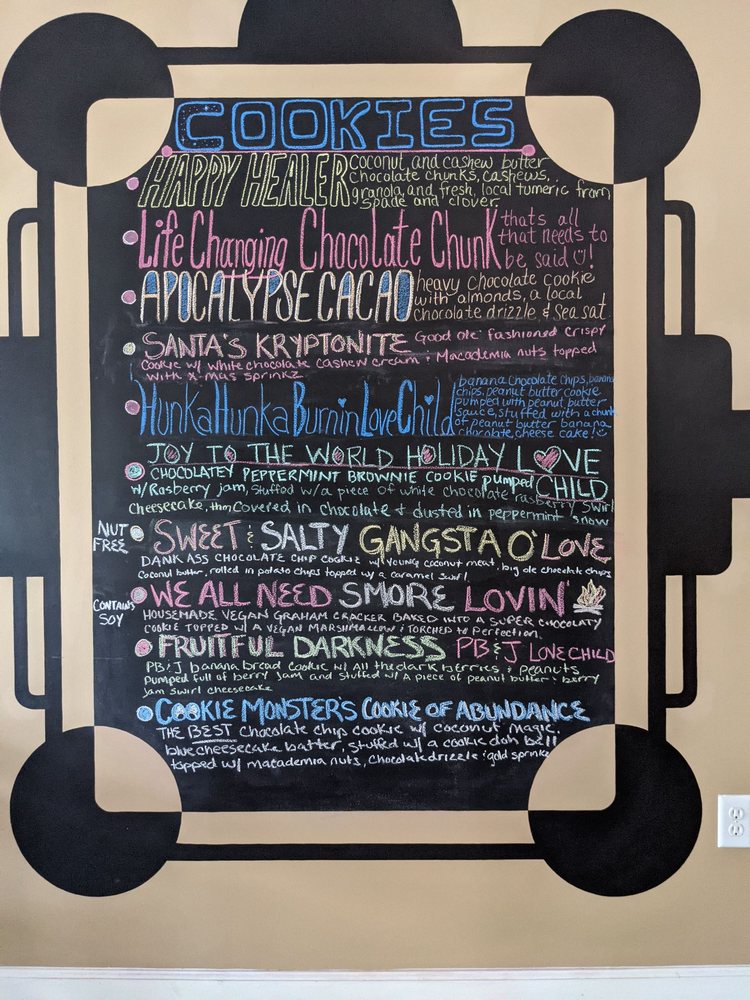 COOKIES
HAPPY HEALER
coconut and cashew butter
chocolate chunks, cashews,
granola, and fresh, local tumeric from
Spade and clover.
Life Changing Chocolate Chunk
thats all
that needs to
be said !
APOCALYPSE CACAO
heavy chocolate cookie
with almonds, a local
chocolate drizzle, & sea sat.
SANTA'S KRYPTONITE
Good ole' fashioned crispy
cookie w/ white chocolate cashew cream & Macademia nuts topped
with x-mas sprinkz
Hunka Hunka Burnin Love Child
banana chocolate chips, banana
chips, peanut butter cookie
pumped with peanut butter
sauce, stuffed with a chunk
of peanut butter banana
chocolate, cheese cake!
JOY TO THE WORLD HOLIDAY LOVE
CHILD
CHOCOLATEY PEPPERMINT BROWNIE COOKIE pumped
w/ Rasberry jam, stuffed w/ a piece of white chocolate rasberry swirl
cheesecake, then covered in chocolate & dusted in peppermint snow
NUT
FREE
SWEET & SALTY GANGSTA O' LOVE
DANK ASS CHOCOLATE CHIP COOKIE w/ YOUNG coconut meat, big ole chocolate chips
coconut butter, rolled in potato chips topped w/ a caramel swirl
CONTAINS
SOY
WE ALL NEED SMORE LOVIN'
HOUSEMADE VEGAN GRAHAM CRACKER BAKED INTO A SUPER CHOCOLATY
COOKIE TOPPED W/ A VEGAN MARSHMALLOW & TORCHED to Perfection.
FRUITFUL DARKNESS PB & J LOVE CHILD
PB & J banana bread cookie w/ All the dark berries & peanuts
pumped full of berry jam and stuffed w/ a piece of peanut butter & berry
jam swirl cheesecake
COOKIE MONSTER'S COOKIE OF ABUNDANCE
THE BEST chocolate chip cookie w/ coconut magic,
blue cheesecake batter, stuffed w/ a cookie doh ball
topped w/ macademia nuts, chocolate drizzle & gold sprinkz